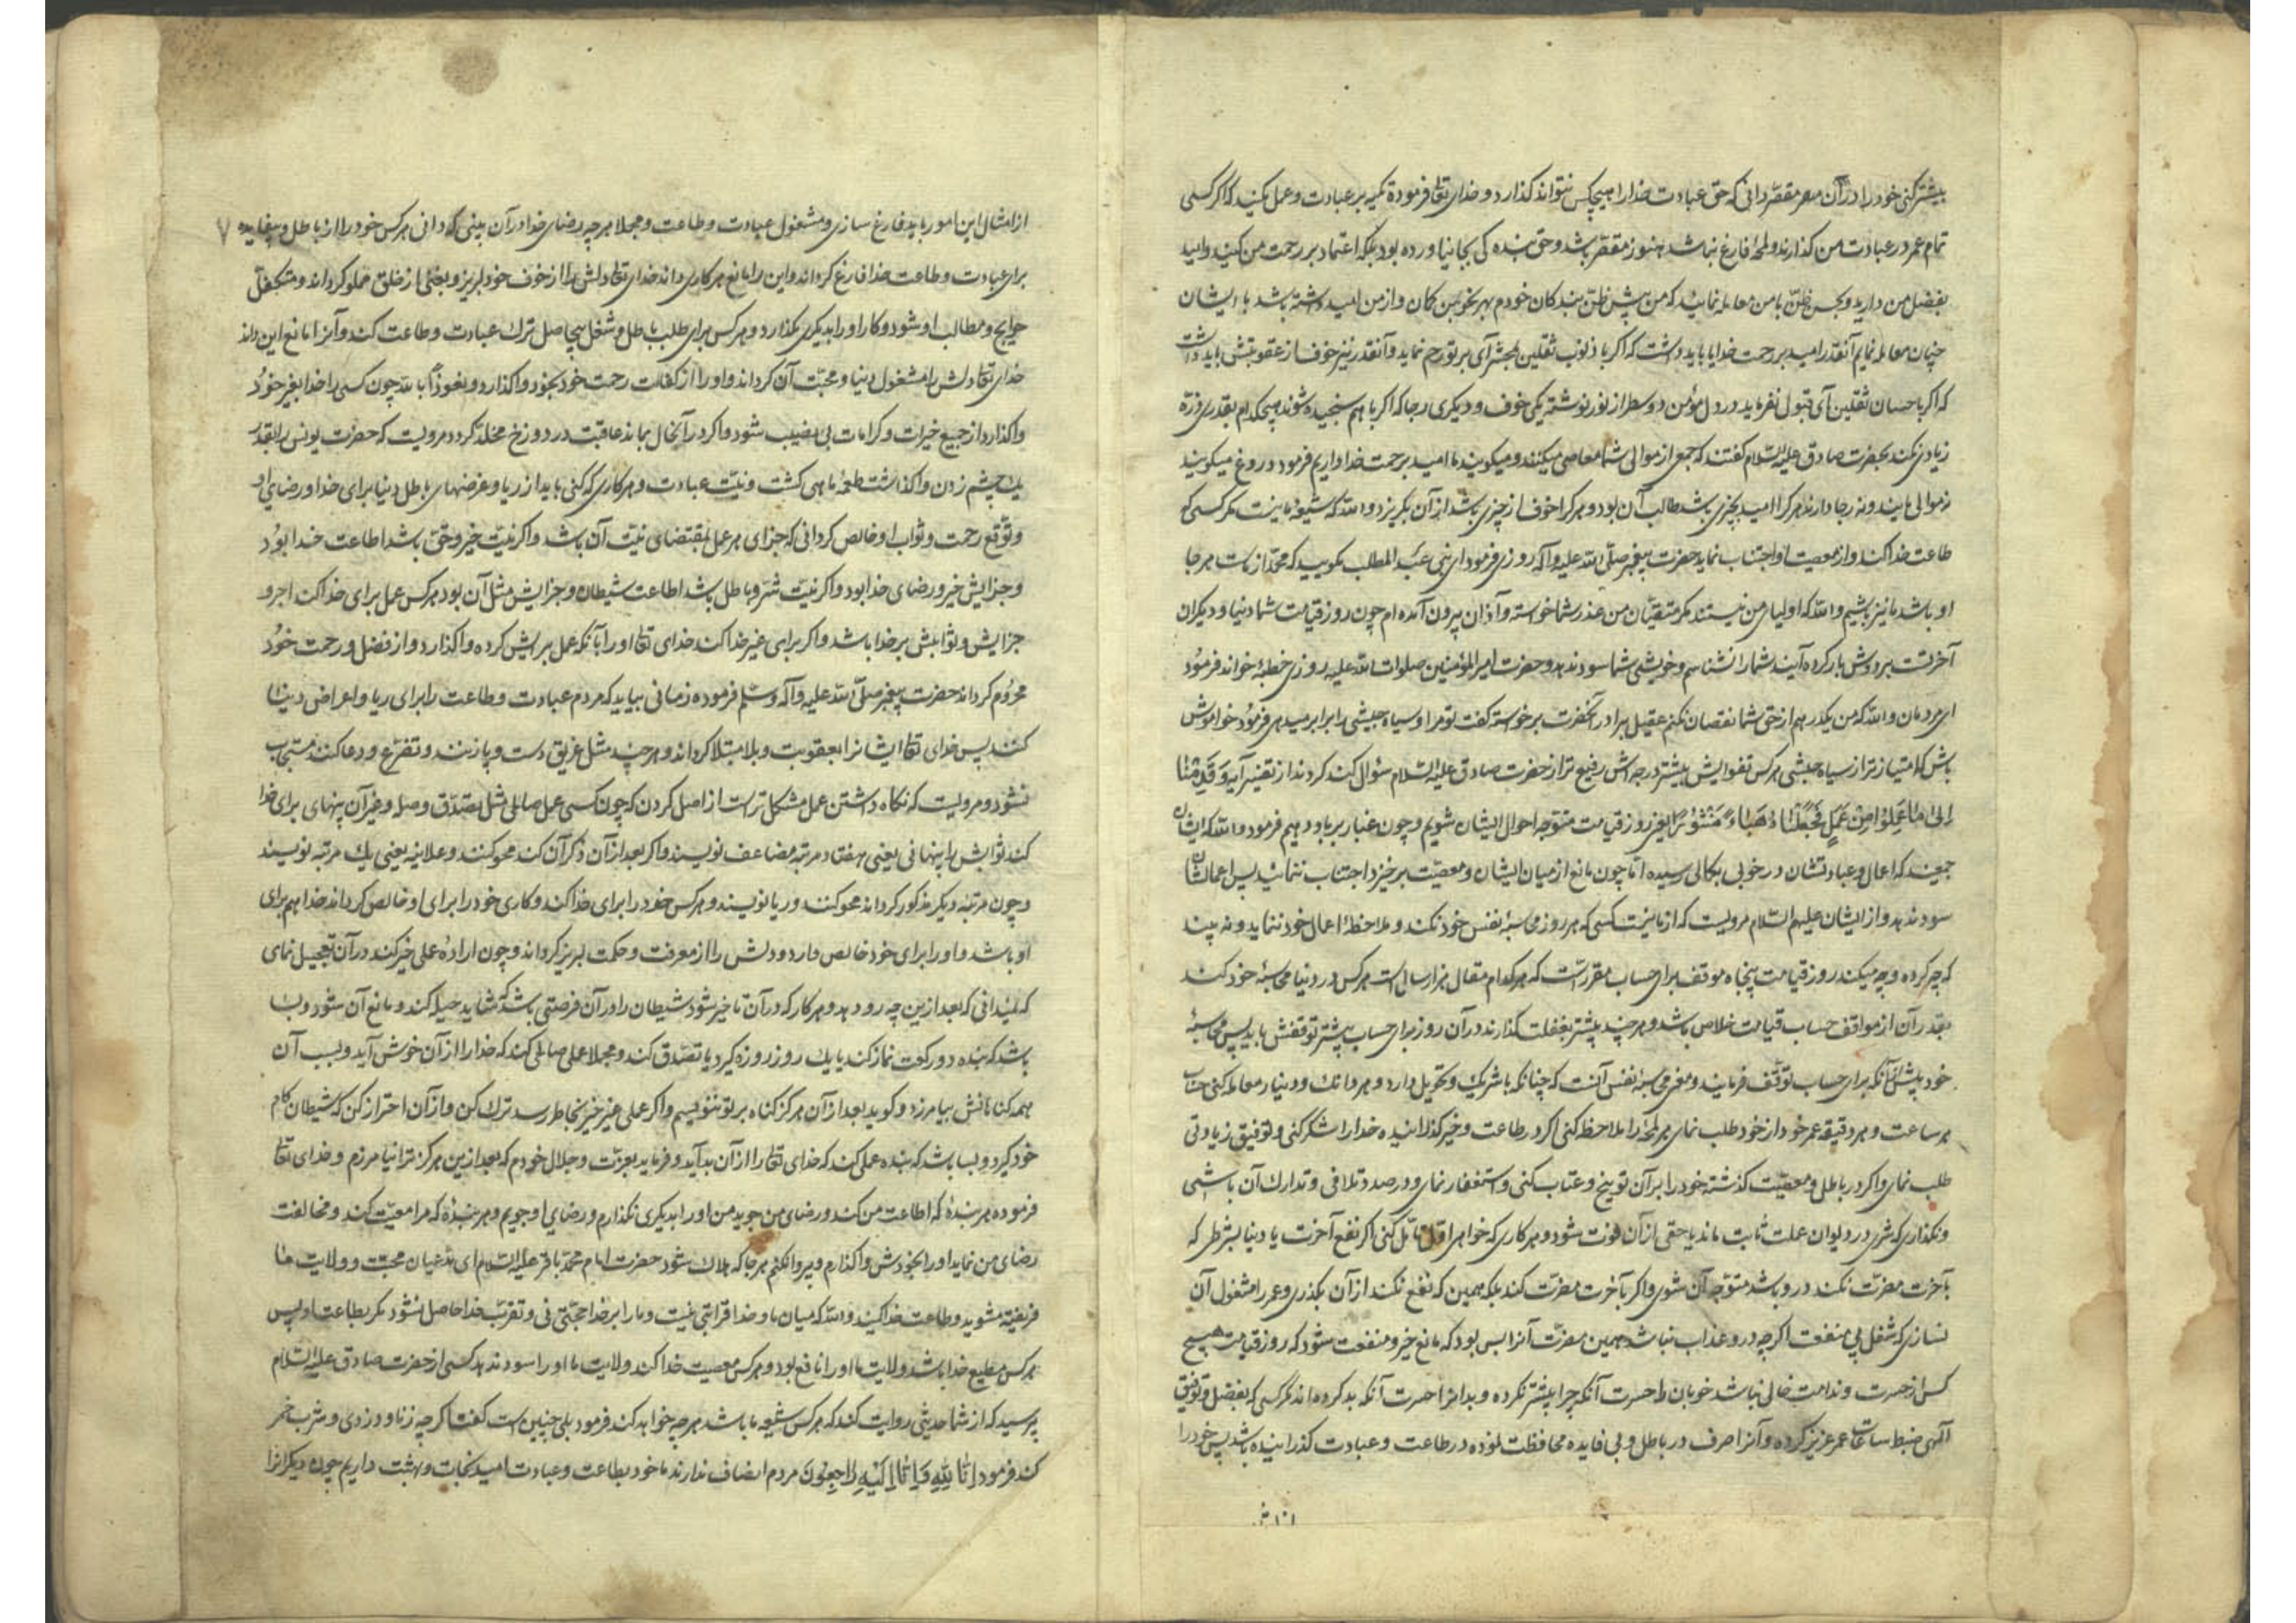 بیشتر کنی خود را در آن مقصر دانی که حق عبادت خدا را هیچکس نتواند گذارد و خدای تعالی فرموده تکیه بر عبادت و عمل مکنید که اگر کسی
تمام عمر در عبادت من گذارند و لمحهٔ فارغ نباشد هنوز مقصر باشد و حق بندگی بجا نیاورده بود بلکه اعتماد بر رحمت من کنید و امید
بفضل من دارید و بحسن ظن با من معامله نمائید که من پیش ظن بندگان خودم بهر نحو بمن گمان و از من امید داشته باشد با ایشان
چنان معامله نمایم آنقدر امید بر رحمت خدایا باید داشت که اگر با ذنوب ثقلین بمحشر آی بر تو رحم نماید و آنقدر نیز خوف از عقوبتش باید داشت
که اگر با حسان ثقلین آی قبول نفرماید در دل مؤمن دو سطر از نور نوشته یکی خوف و دیگری رجا که اگر با هم سنجیده شوند هیچکدام بقدر ذره
زیادتی نکند بحضرت صادق علیه السلام گفتند که جمعی از موالی شما معاصی میکنند و میگویند ما امید برحمت خدا داریم فرمود دروغ میگویند
نه موالی مایند و نه رجا دارند هر که را امید بچیزی باشد طالب آن بود و هر که را خوف از چیزی باشد از آن بگریزد و الله که شیعهٔ ما نیست مگر کسی که
طاعت خدا کند و از معصیت او اجتناب نماید حضرت پیغمبر صلی الله علیه و آله روزی فرمود ای بنی عبد المطلب مگویید که محمد از ماست هر جا
او باشد ما نیز باشیم والله که اولیای من نیستند مگر متقیان من عذر شما خواسته و از آن بیرون آمده ام چون روز قیامت شما دنیا و دیگران
آخرت بر دوش بار کرده آیند شما را نشناسم و خویشی شما سود ندهد و حضرت امیر المؤمنین صلوات الله علیه روزی خطبهٔ خواند فرمود
ای مردمان والله که من یکدرهم از حق شما نقصان نکنم عقیل برادر آنحضرت برخواسته گفت تو مرا و سیاه حبشی را برابر میدهی فرمود خواموش
باش که امتیاز تو از سیاه حبشی هر کس تقوایش بیشتر درجه اش رفیع تر از حضرت صادق علیه السلام سؤال کردند از تفسیر آیه وَقَدِمْنَا
إِلَىٰ مَا عَمِلُوا مِنْ عَمَلٍ فَجَعَلْنَاهُ هَبَاءً مَنْثُورًا یعنی روز قیامت متوجه احوال ایشان شویم و چون غبار بر باد دهیم فرمود والله که ایشان
جمعیند که اعمال و عبادتشان در خوبی بکمالی رسیده اما چون مانع از میان ایشان و معصیت برخیزد اجتناب ننمایند پس اعمالشان
سود ندهد و از ایشان علیهم السلام مرویست که از ما نیست کسی که هر روز محاسبهٔ نفس خود نکند و ملاحظهٔ اعمال خود ننماید و نه بیند
که چه کرده و چه میکند روز قیامت پنجاه موقف برای حساب مقررست که هر کدام مقال هزار سال است هر کس در دنیا محاسبهٔ خود کند
بقدر آن از مواقف حساب قیامت خلاص باشد و هر چند بیشتر بغفلت گذراند در آن روز برای حساب بیشتر توقفش باید پس محاسبهٔ
خود پیش از آنکه برای حساب توقف فرمایند و معنی محاسبهٔ نفس آنست که چنانکه با شریک و تحویل دارد و هر دانک و دینار معامله کنی حساب
هر ساعت و هر دقیقه عمر خود از خود طلب نمای هر لمحه را ملاحظه کنی اگر در طاعت و خیر گذرانیده خدا را شکر کنی و توفیق زیادتی
طلب نمای و اگر در باطل و معصیت گذشته خود را بر آن توبیخ و عتاب کنی و استغفار نمای و در صدد تلافی و تدارک آن باشی
و نگذاری که شری در دیوان عملت ثابت ماند یا حقی از آن فوت شود و هر کاری که خواهی اول تأمل کنی اگر نفع آخرت یا دنیا بشرطی که
بآخرت مضرت نکند در و باشد متوجه آن شوی و اگر بآخرت مضرت کند بلکه همین که نفع نکند از آن بگذری و عمر را مشغول آن
نسازی که شغل بی منفعت اگرچه در و عذاب نباشد همین مضرت آنرا بس بود که مانع خیر و منفعت شود که روز قیامت هیچ
کس از حسرت و ندامت خالی نباشد خوبان را حسرت آنکه چرا بیشتر نکرده و بدانرا حسرت آنکه بد کرده اند مگر کسی که بفضل و توفیق
آلهی ضبط ساعات عمر عزیز کرده و آنرا صرف در باطل و بی فایده محافظت نموده در طاعت و عبادت گذرانیده باشد پس خود را
از امثال
از امثال این امور باید فارغ سازی و مشغول عبادت و طاعت و مجملا هر چه رضای خدا در آن بینی گردانی هر کس خود را از باطل و بیفایده ۷
برای عبادت و طاعت خدا فارغ گرداند و این را مانع هر کاری داند خدای تعالی دلش را از خوف خود لبریز و بغنی از خلق مملو گرداند و متکفل
حوایج و مطالب او شود و کار او را بدیگری نگذارد و هر کس برای طلب باطل و شغل بیحاصل ترک عبادت و طاعت کند و آنرا مانع این داند
خدای تعالی دلش را مشغول دنیا و محبت آن گرداند و او را از کفالت رحمت خود بخود واگذارد و نعوذ بالله چون کسی را خدا بغیر خود
واگذارد از جمیع خیرات و کرامات بی نصیب شود و اگر در آنحال بماند عاقبت در دوزخ مخلد گردد مرویست که حضرت یونس را بقدر
یک چشم زدن واگذاشت طعمهٔ ماهی گشت و نیت عبادت و هر کاری که کنی باید از ریا و غرضهای باطل دنیا برای خدا و رضای او
و توقع رحمت و ثواب او خالص گردانی که جزای هر عمل بمقتضای نیت آن باشد و اگر نیت خیر و حق باشد اطاعت خدا بود
و جزایش خیر و رضای خدا بود و اگر نیت شر و باطل باشد اطاعت شیطان و جزایش مثل آن بود هر کس عمل برای خدا کند اجر و
جزایش و ثوابش بر خدا باشد و اگر برای غیر خدا کند خدای تعالی او را بآنکه عمل برایش کرده واگذارد و از فضل و رحمت خود
محروم گرداند حضرت پیغمبر صلی الله علیه و آله وسلم فرموده زمانی بیاید که مردم عبادت و طاعت را برای ریا و اعراض دنیا
کنند پس خدای تعالی ایشانرا بعقوبت و بلا مبتلا گرداند و هر چند مثل غریق دست و پا زنند و تضرع و دعا کنند مستجاب
نشود و مرویست که نگاه داشتن عمل مشکل تر است از اصل کردن که چون کسی عمل صالحی مثل تصدق و صله و غیر آن پنهای برای خدا
کند ثوابش را پنهانی یعنی هفتاد مرتبه مضاعف نویسند و اگر بعد از آن ذکر آن کند محو کنند و علانیه یعنی یک مرتبه نویسند
و چون مرتبهٔ دیگر مذکور گرداند محو کنند و ریا نویسند و هر کس خود را برای خدا کند و کاری خود را برای او خالص گرداند خدا هم برای
او باشد و او را برای خود خالص دارد و دلش را از معرفت و حکمت لبریز گرداند و چون ارادهٔ عملی خیر کند در آن تعجیل نمای
که نمیدانی که بعد ازین چه رو دهد و هر کار که در آن تأخیر شود شیطان را در آن فرصتی باشد که شاید حیله کند و مانع آن شود و بسا
باشد که بنده دو رکعت نماز کند یا یک روز روزه گیرد یا تصدق کند و مجملا عملی صالحی کند که خدا را از آن خوش آید و بسبب آن
همه گناهانش بیامرزد و گوید بعد از آن هرگز گناه بر تو ننویسم و اگر عملی غیر خیر بخاطر رسد ترک کن و از آن احتراز کن که شیطان کام
خود گیرد و بسا باشد که بنده عملی کند که خدای تعالی را از آن بد آید و فرماید بعزت و جلال خودم که بعد ازین هرگز ترا نیامرزم و خدای تعالی
فرموده هر بندهٔ که اطاعت من کند و رضای من جوید من او را بدیگری نگذارم و رضای او جویم و هر بندهٔ که مرا معصیت کند و مخالفت
رضای من نماید او را بخودش واگذارم و پروا نکنم هر جا که هلاک شود حضرت امام محمد باقر علیه السلام ای مدعیان محبت و ولایت ما
فریفته مشوید و طاعت خدا کنید والله که میان ما و خدا قرابتی نیست و ما را بر خدا حجتی نی و تقرب خدا حاصل نشود مگر بطاعت او پس
هر کس مطیع خدا باشد ولایت ما او را نافع بود و هر کس معصیت خدا کند ولایت ما او را سود ندهد کسی از حضرت صادق علیه السلام
پرسید که از شما حدیثی روایت کند که هر کس شیعه ما باشد هر چه خواهد کند فرمود بلی چنین است گفت اگرچه زنا و دزدی و شرب خمر
کند فرمود إِنَّا لِلَّهِ وَإِنَّا إِلَيْهِ رَاجِعُونَ مردم انصاف ندارند ما خود بطاعت و عبادت امید نجات و بهشت داریم چون دیگرانرا